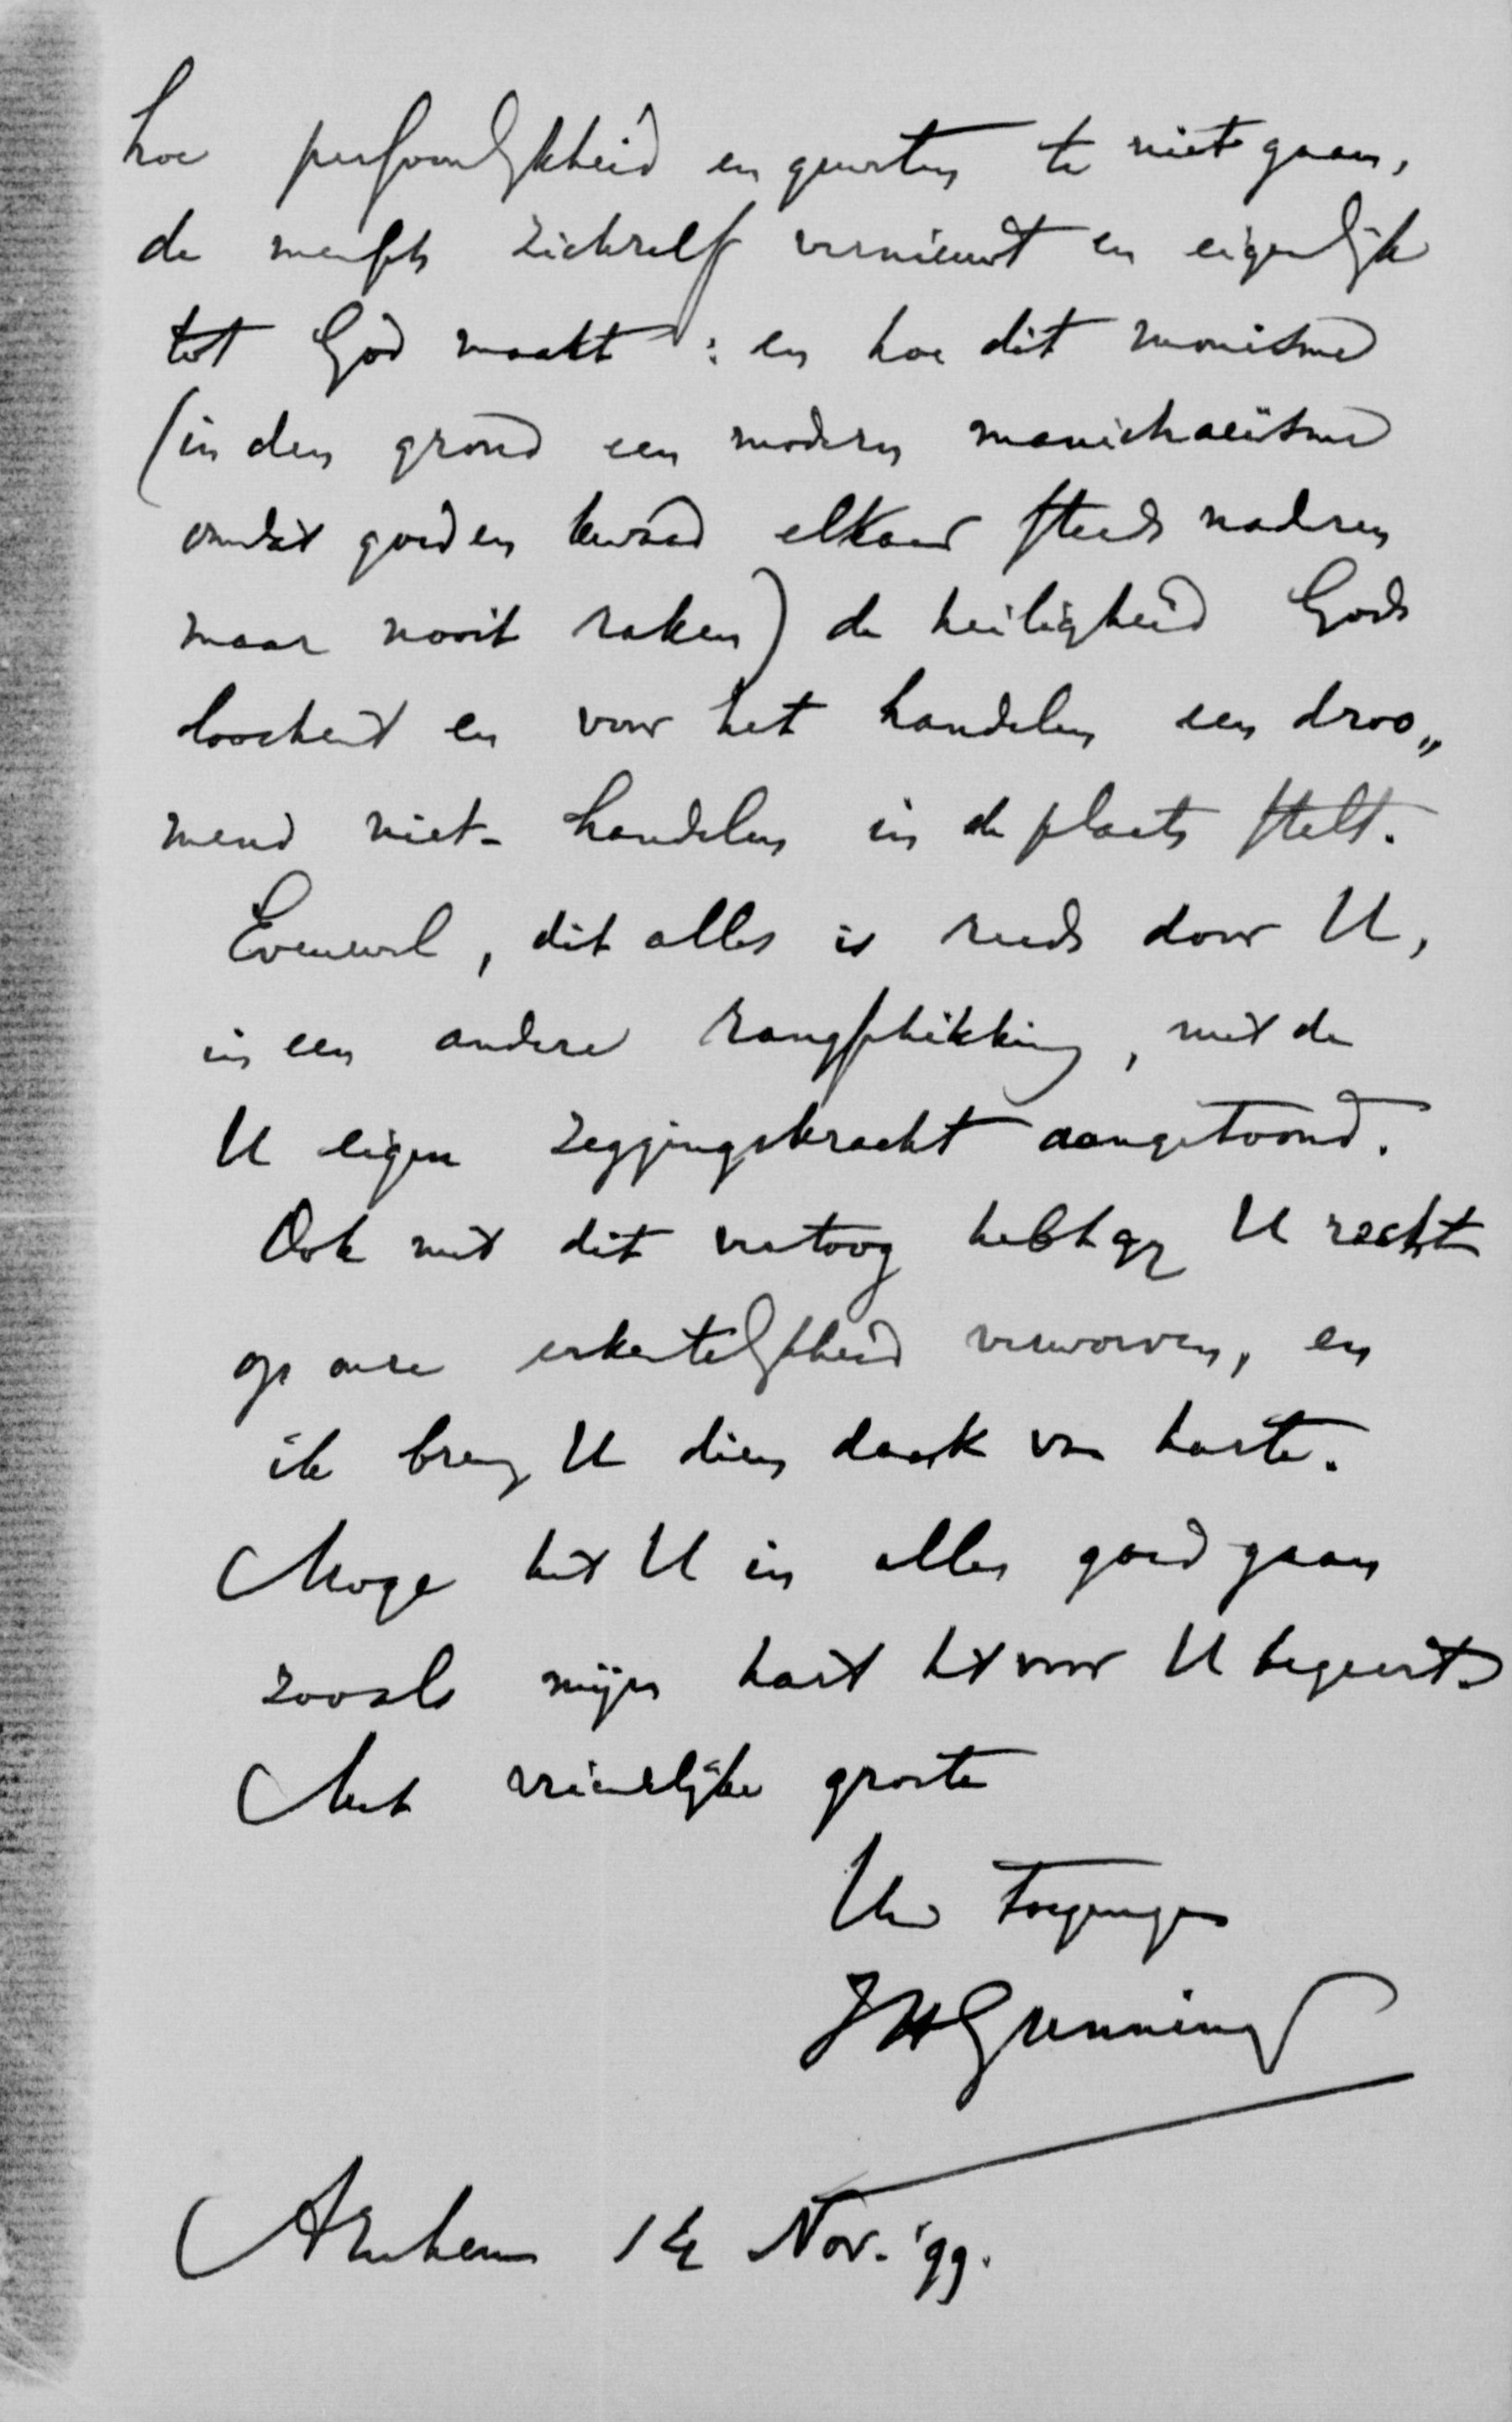 hoe persoonlijkheid en geweten te niet gaan,
de mensch zichzelf vernieuwt en eigenlijk
tot God maakt : en hoe dit monisme
(in den grond een modern manichaeïsme
omdat goed en kwaad elkaar steeds naderen
maar nooit raken) de heiligheid Gods
loochent en voor het handelen een droo„
mend niet-handelen in de plaats stelt.
Evenwel, dit alles is reeds door U,
in een andere rangschikking, met de
U eigen zeggingskracht aangetoond.
Ook met dit vertoog hebt gij U recht
op onze erkentelijkheid verworven, en
ik breng U dien dank van harte.
Moge het U in alles goed gaan
zooals mijn hart het voor U begeert.
Met vriendelijke groete
Uw toegenegen
JHGunning
Arnhem 14 Nov. '99.